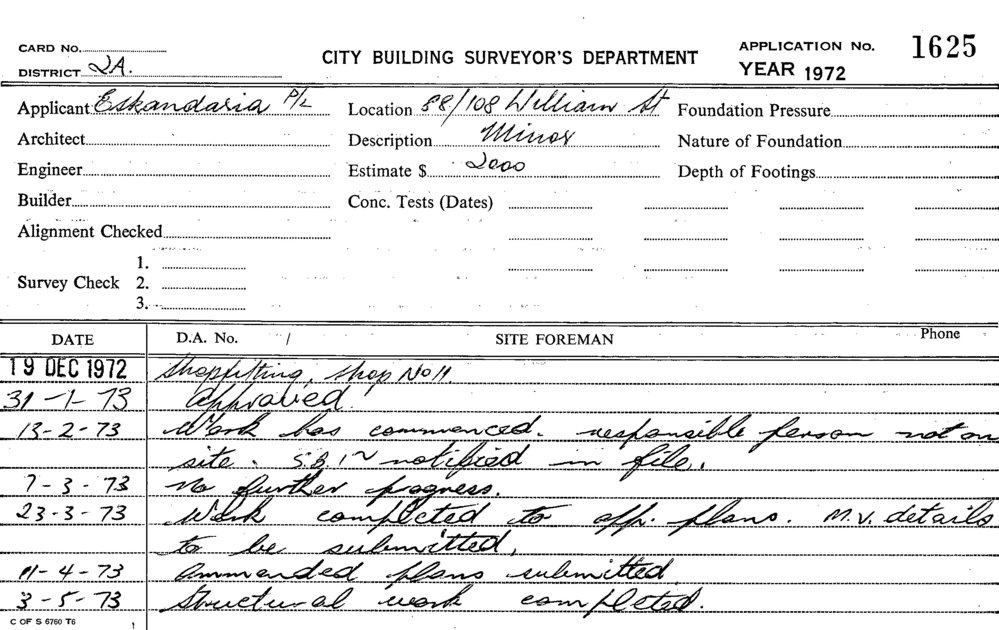 CARD No.
DISTRICT 2A.
CITY BUILDING SURVEYOR'S DEPARTMENT
APPLICATION No. 1625
YEAR 1972
Applicant Eskandaria P/L
Location 88/108 William St
Foundation Pressure
Architect
Description Minor
Nature of Foundation
Engineer
Estimate $ 2000
Depth of Footings
Builder
Conc. Tests (Dates)
Alignment Checked
Survey Check 1.
2.
3.
DATE D.A. No. / SITE FOREMAN Phone
19 DEC 1972 Shopfitting, shop No 11.
31-1-73 Approved.
13-2-73 Work has commenced. responsible person not on
site. S.B.I. notified in file.
7-3-73 No further progress.
23-3-73 Work completed to app. plans. M.V. details
to be submitted.
11-4-73 Ammended plans submitted
3-5-73 Structural work completed.
C OF S 6760 T6